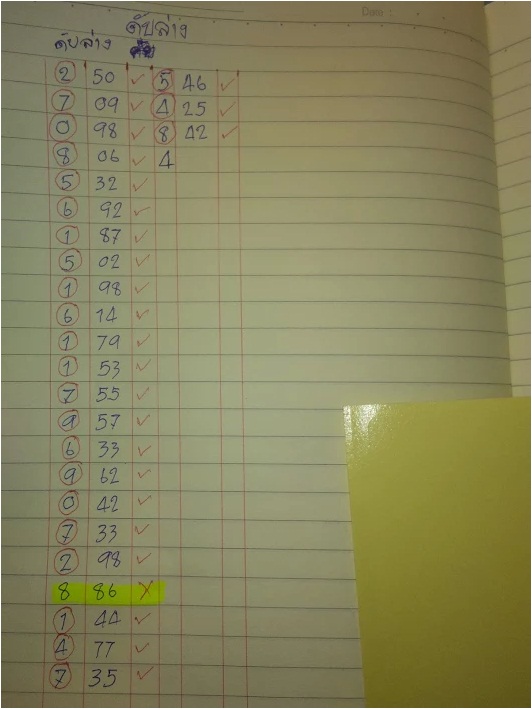 Date :
ดับล่าง ดับล่าง
2 50 ✓ 5 46 ✓
7 09 ✓ 4 25 ✓
0 98 ✓ 8 42 ✓
8 06 ✓ 4
5 32 ✓
6 92 ✓
1 87 ✓
5 02 ✓
1 98 ✓
6 14 ✓
1 79 ✓
1 53 ✓
7 55 ✓
9 57 ✓
6 33 ✓
9 62 ✓
0 42 ✓
7 33 ✓
2 98 ✓
8 86 X
1 44 ✓
4 77 ✓
7 35 ✓